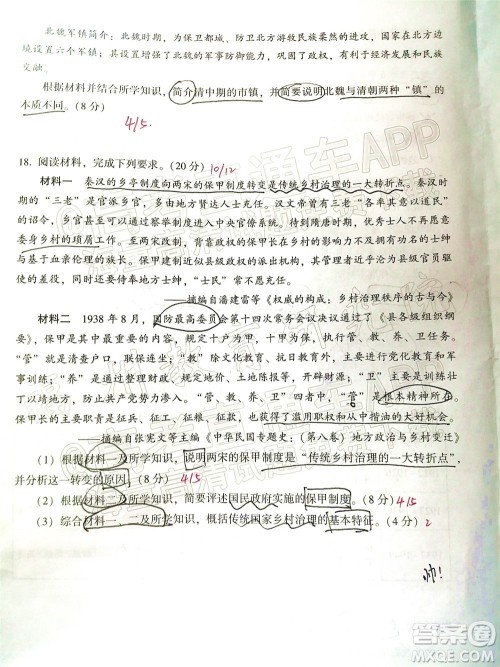 北魏军镇简介：北魏时期，为保卫都城、防卫北方游牧民族柔然的进攻，国家在北方边
境设置六个军镇。其显示增强了北魏的军事防御能力，巩固了政权，有利于经济发展和民族
交融。
根据材料并结合所学知识，简介清中期的市镇，并简要说明北魏与清朝两种“镇”的
本质不同。（8 分）
4/5.
18. 阅读材料，完成下列要求。（20 分）
10/12
材料一 秦汉的乡亭制度向两宋的保甲制度转变是传统乡村治理的一大转折点。秦汉时
期的“三老”是官派乡官，多由地方贤达人士担任。汉文帝曾有乡官三老“各率其意以道民”
的诏令，乡官县吏也有很多机会进入中央官僚系统。待到隋唐时期，优秀士人不再愿意
委身乡村的琐屑工作……至两宋时期，保甲长在人员构成上，则主要是政治色彩淡化的士绅
与基于血亲伦理的族长。保甲的建制近似县级政权的派出机构，其管理者近乎沦为县级官员
的差役，同时还要侍奉地方士绅，“士民”常不愿充任。
——摘编自潘建雷等《权威的构成：乡村治理秩序的古与今》
材料二 1938 年 8 月，国防最高委员会第十四次常务会议决议通过了《县各级组织纲
要》，保甲长是其中的关键，规定了保甲长应办理管、教、养、卫任务。
“管”就是清查户口，联保连坐；“教”除文化教育、识字教育外，还要进行党化教育和军事
训练；“养”是通过整理财政、规定地价、土地陈报等，开辟财源；“卫”就是训练民众，维持
地方治安，防止共产党势力侵入。“管、教、养、卫”四者中，“管”是根本精神所在。
保甲长的主要职责是征兵、征工、征粮、征税等，由此获得了滥用职权和从中揩油的大好机会。
——摘编自张宪文等主编《中华民国专题史：（第八卷）地方政治与乡村变迁》
（1）根据材料一及所学知识，说明两宋的保甲制度是“传统乡村治理的一大转折点”，
并分析这一转变的原因。（8 分） 4/5
（2）根据材料二及所学知识，简要评述国民政府实施的保甲制度。（8 分） 4/5
（3）综合材料一、二及所学知识，概括传统国家乡村治理的基本特征。（4 分） 2
帅！
答案圈
MXQE.COM